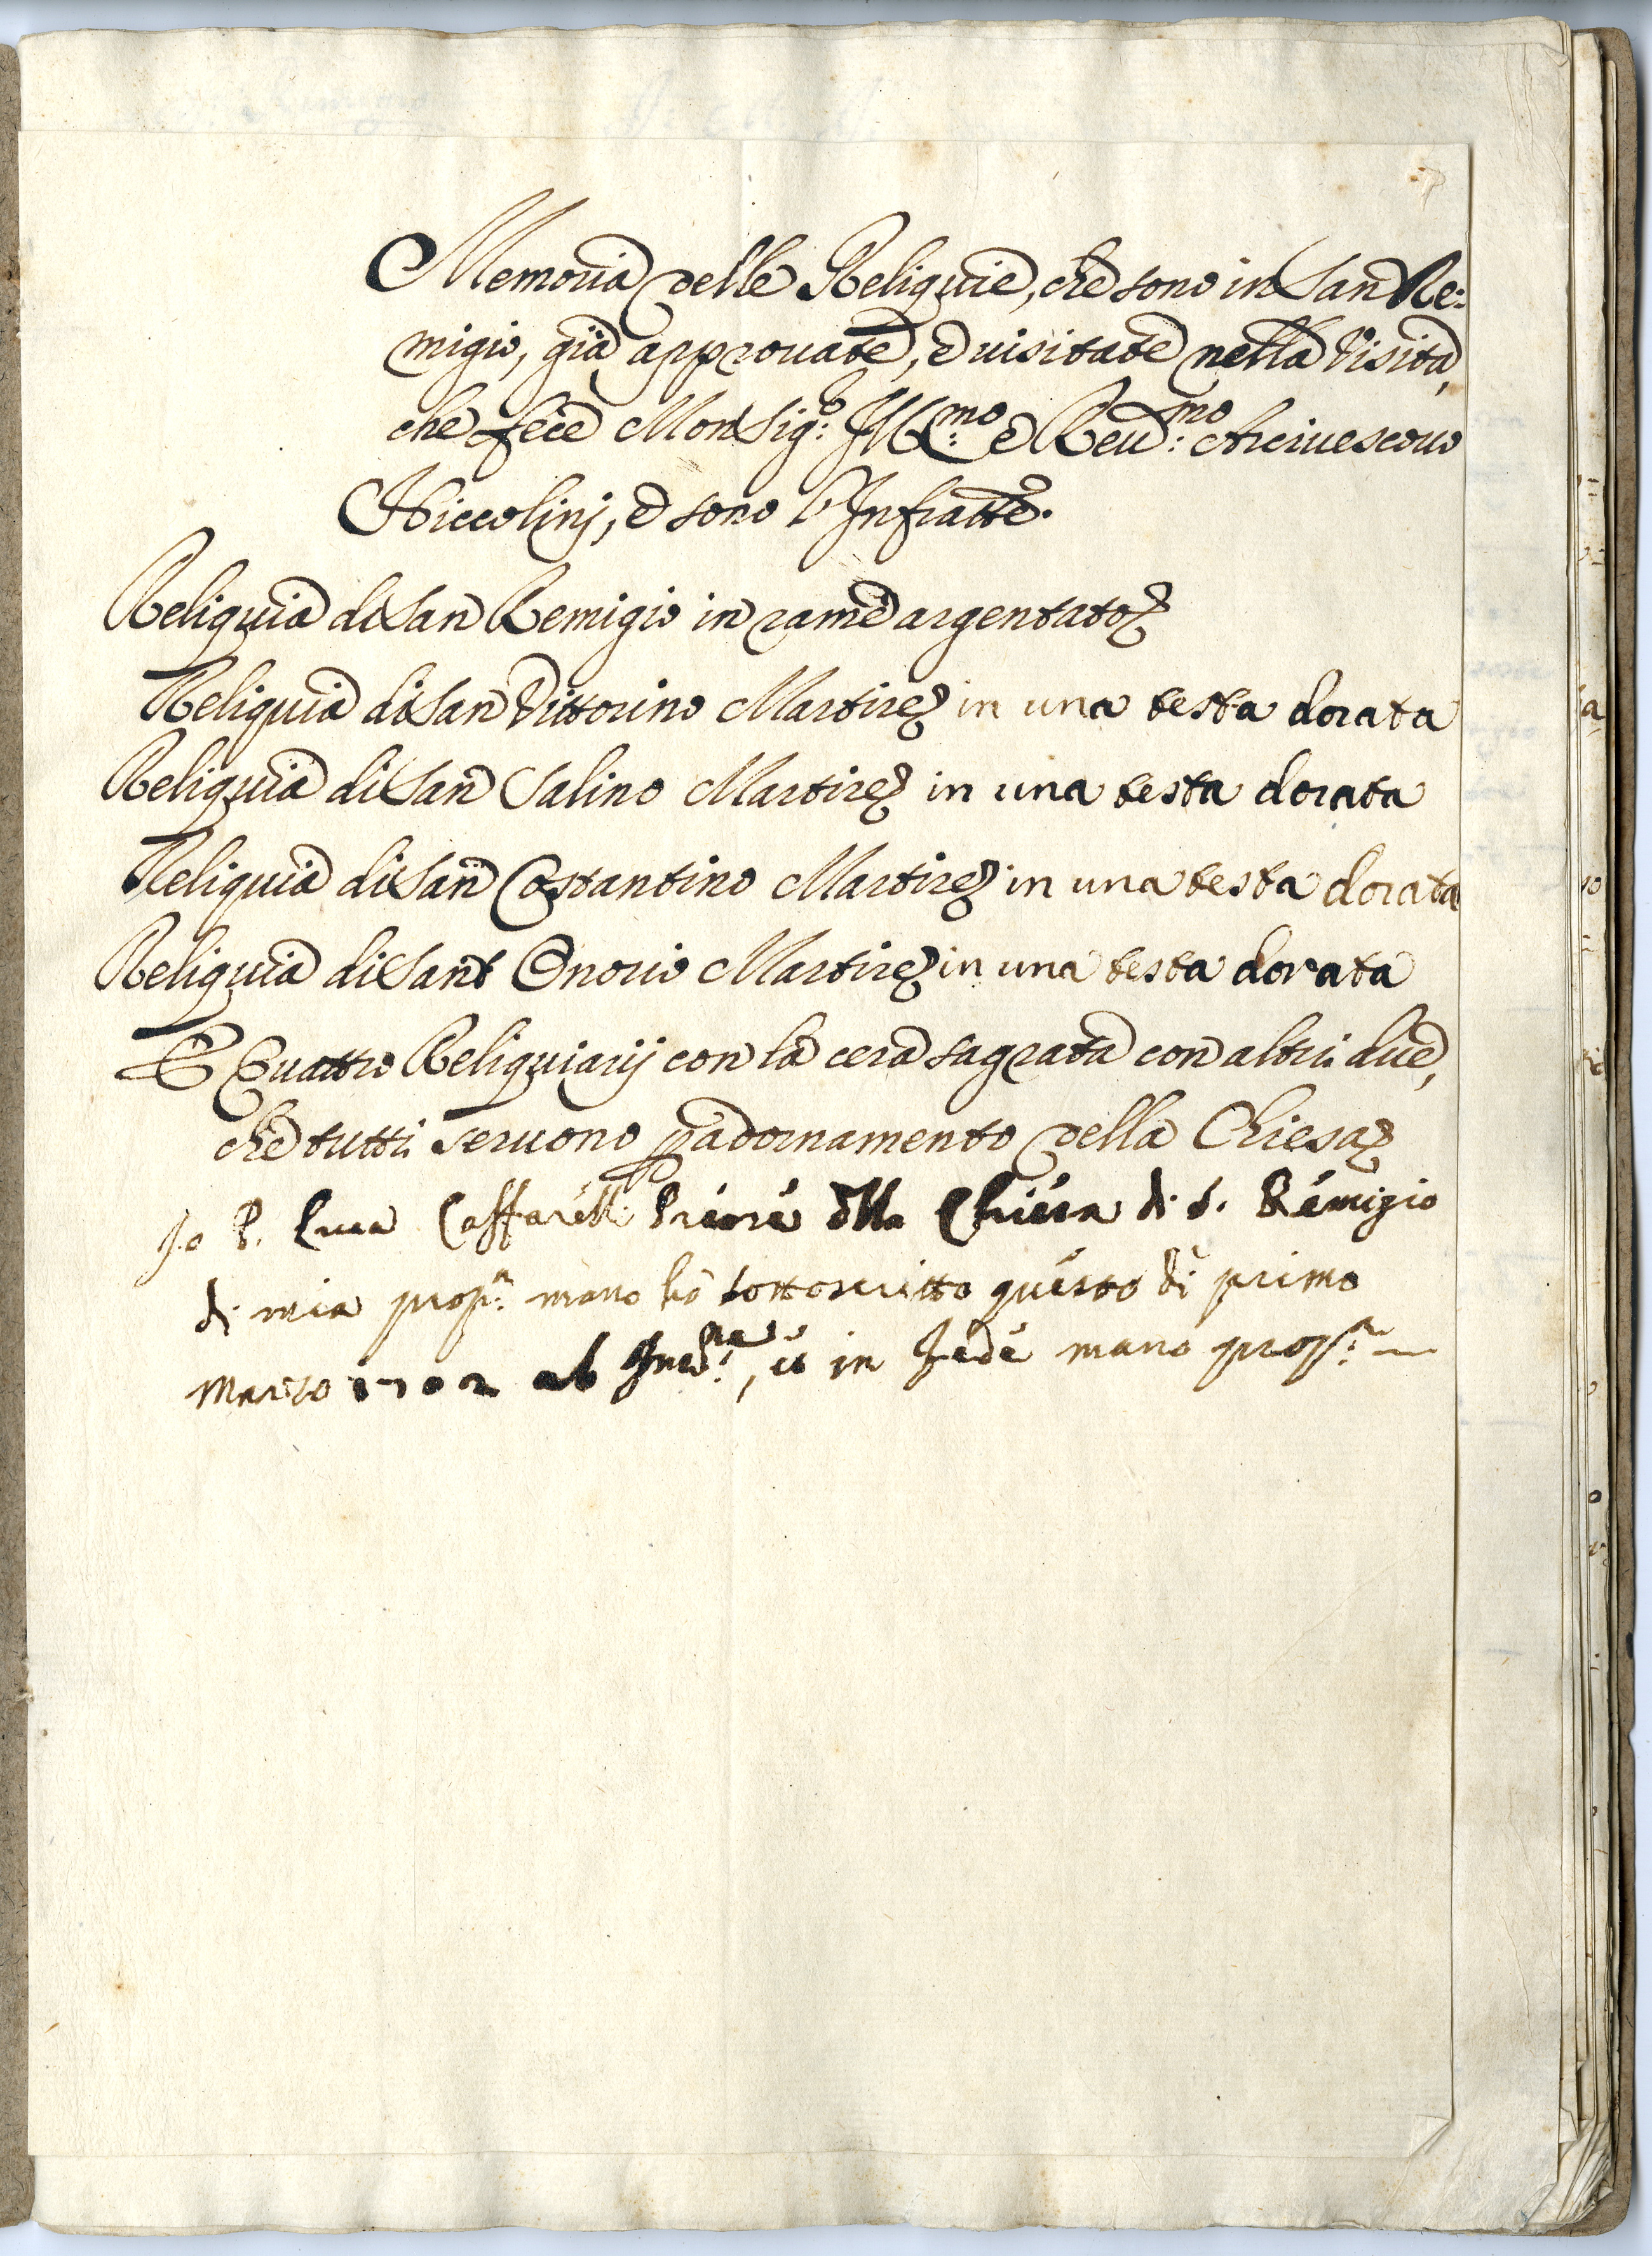 Memoria delle Reliquie, che sono in San Re:
migio, già approuate, e uisitate nella Visita,
che fece Monsig:r Ill:mo e Reu:mo Arciuescouo
Niccolinj, e sono l'Infratte.
Reliquia di San Remigio in rame argentato
Reliquia di San Vittorino Martire in una testa dorata
Reliquia di San Salino Martire in una testa dorata
Reliquia di San Costantino Martire in una testa dorata
Reliquia di Sant Onorio Martire in una testa dorata
E Quattro Reliquiarij con la cera sagrata con altri due,
che tutti seruono p adornamento della Chiesa
Io P. Luca Caffarelli Priore dlla Chiesa di S. Remigio
di mia prop:a mano hò sottoscritto questo dì primo
Marzo 1702 ab Inc:ne, et in fede mano prop:a